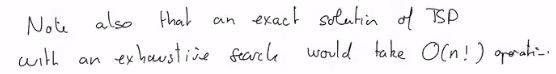 Note also that an exact solution of TSP
with an exhaustive search would take O(n!) operation.